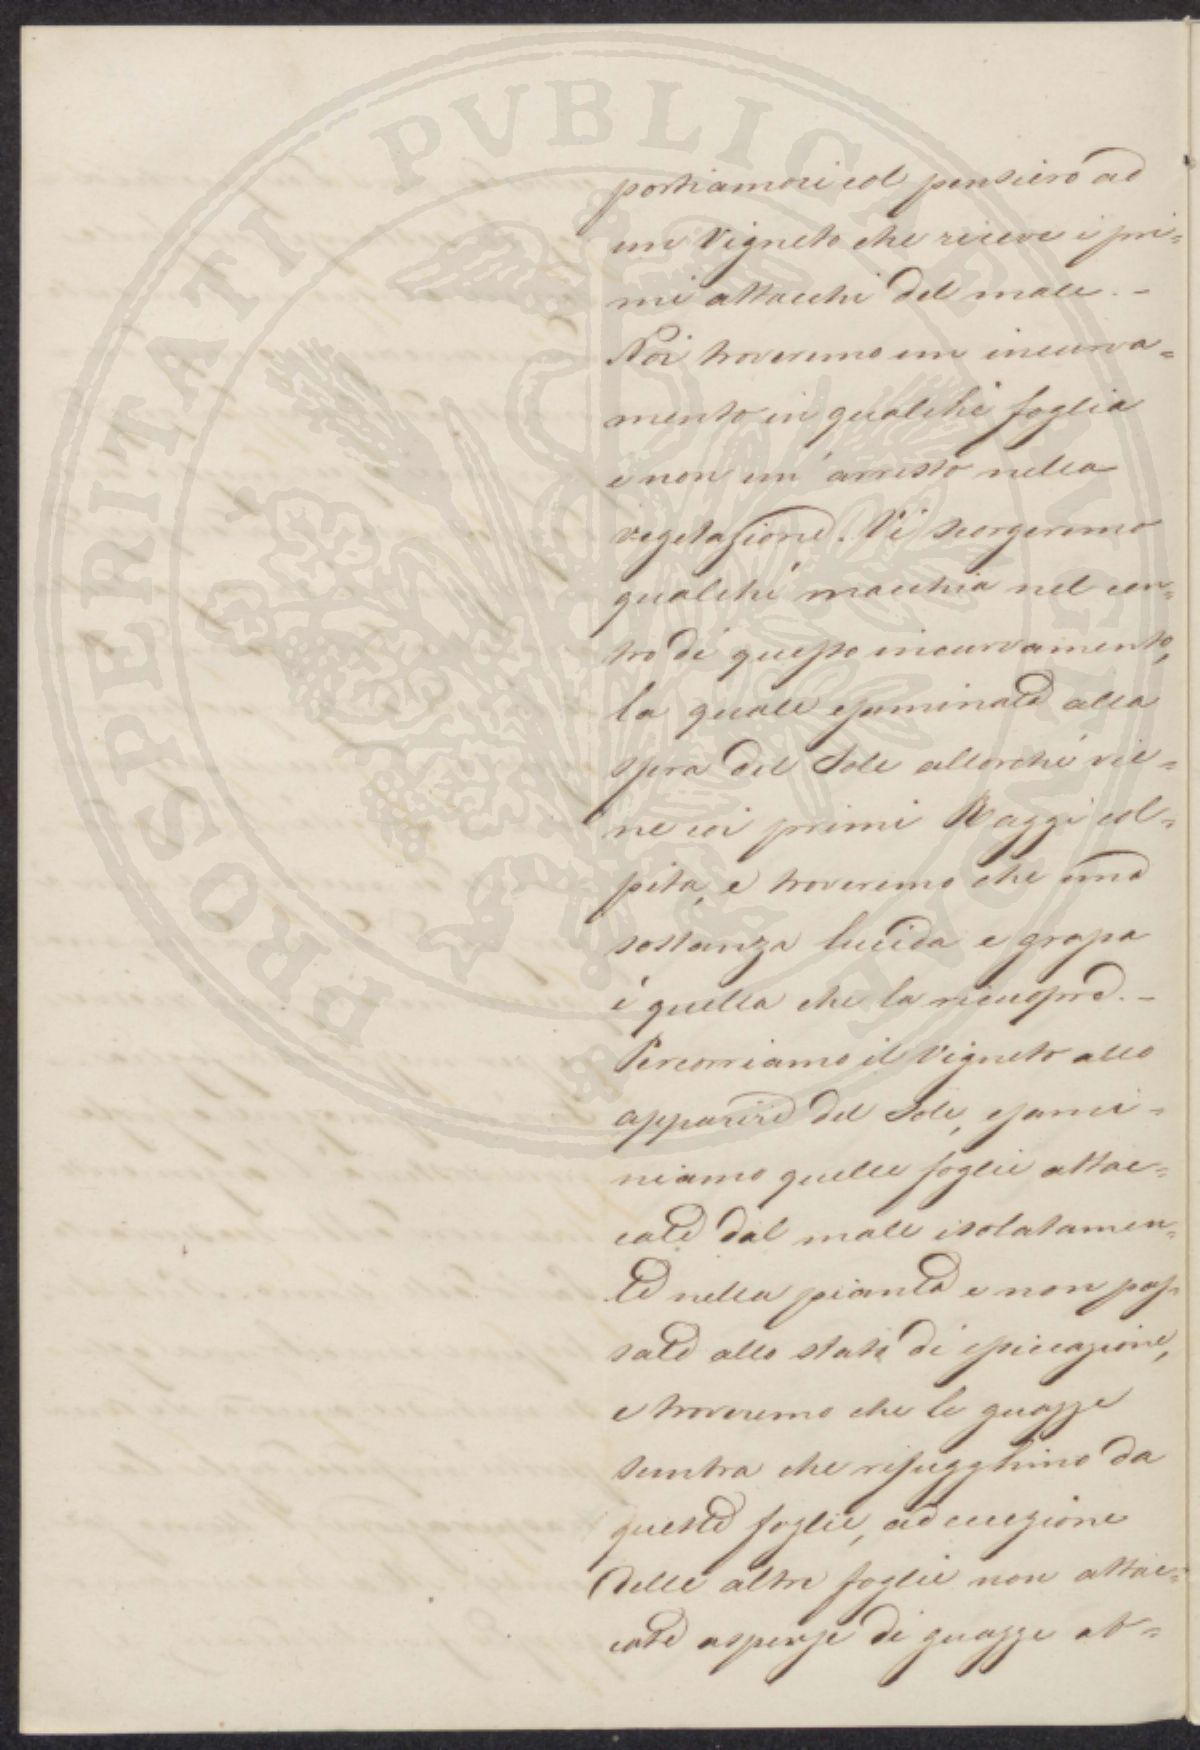 PROSPERITATI PVBLICAE AVGENDAE
portiamoci col pensiero ad
un Vigneto che riceve i pri=
mi attacchi del male. -
Noi troveremo un incurva=
mento in qualche foglia
e non un' arresto nella
vegetazione. Vi scorgeremo
qualche macchia nel cen=
tro di questo incurvamento,
la quale esaminata alla
spera del Sole allorché vie=
ne coi primi Raggi col=
pita, e troveremo che una
sostanza lucida e grassa
é quella che la ricuopre. -
Percorriamo il Vigneto allo
apparire del Sole, esami=
niamo quelle foglie attac=
cate dal male isolatamen=
te nella pianta e non pas=
sate allo stato di essiccazione,
e troveremo che le guazze
sembra che rifugghino da
queste foglie, ad eccezione
delle altre foglie non attac=
cate asperse di guazze ab=